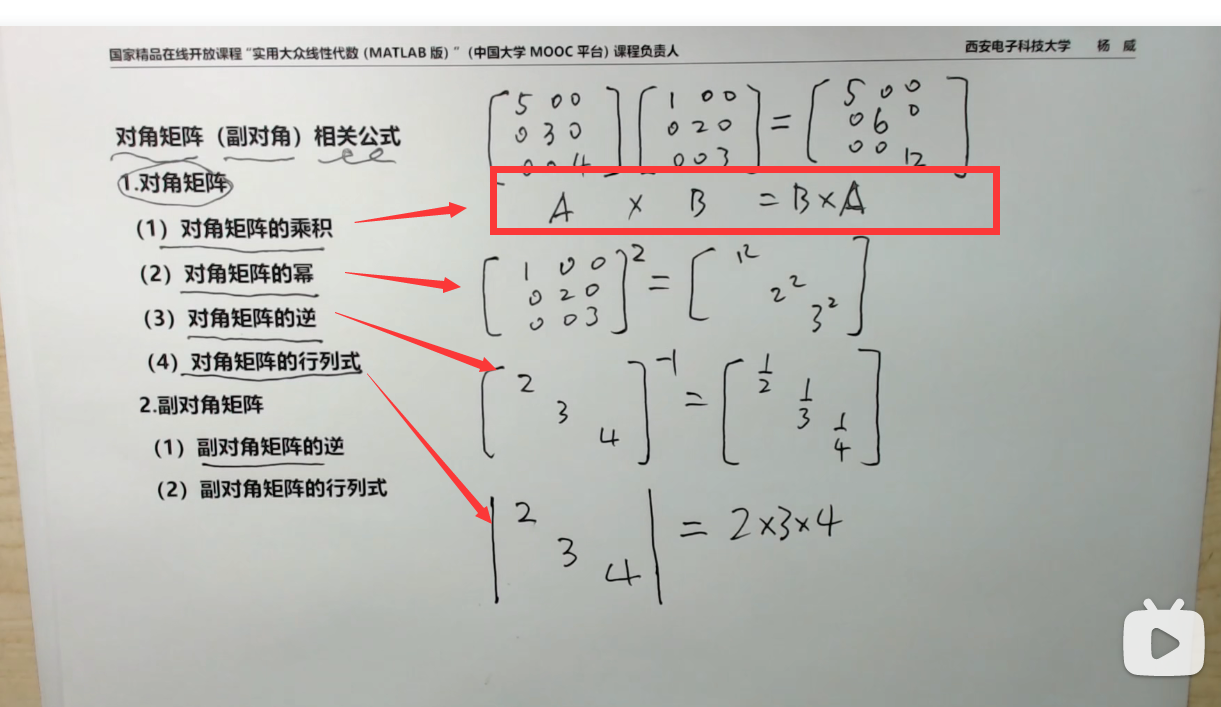 国家精品在线开放课程“实用大众线性代数（MATLAB 版）”（中国大学 MOOC 平台）课程负责人
西安电子科技大学 杨 威
对角矩阵（副对角）相关公式
1.对角矩阵
（1）对角矩阵的乘积
（2）对角矩阵的幂
（3）对角矩阵的逆
（4）对角矩阵的行列式
2.副对角矩阵
（1）副对角矩阵的逆
（2）副对角矩阵的行列式
5 0 0 1 0 0 5 0 0
0 3 0 0 2 0 = 0 6 0
0 0 4 0 0 3 0 0 12
A × B = B × A
1 0 0 2 1²
0 2 0 = 2²
0 0 3 3²
2 -1 1/2
3 = 1/3
4 1/4
2
3 = 2×3×4
4